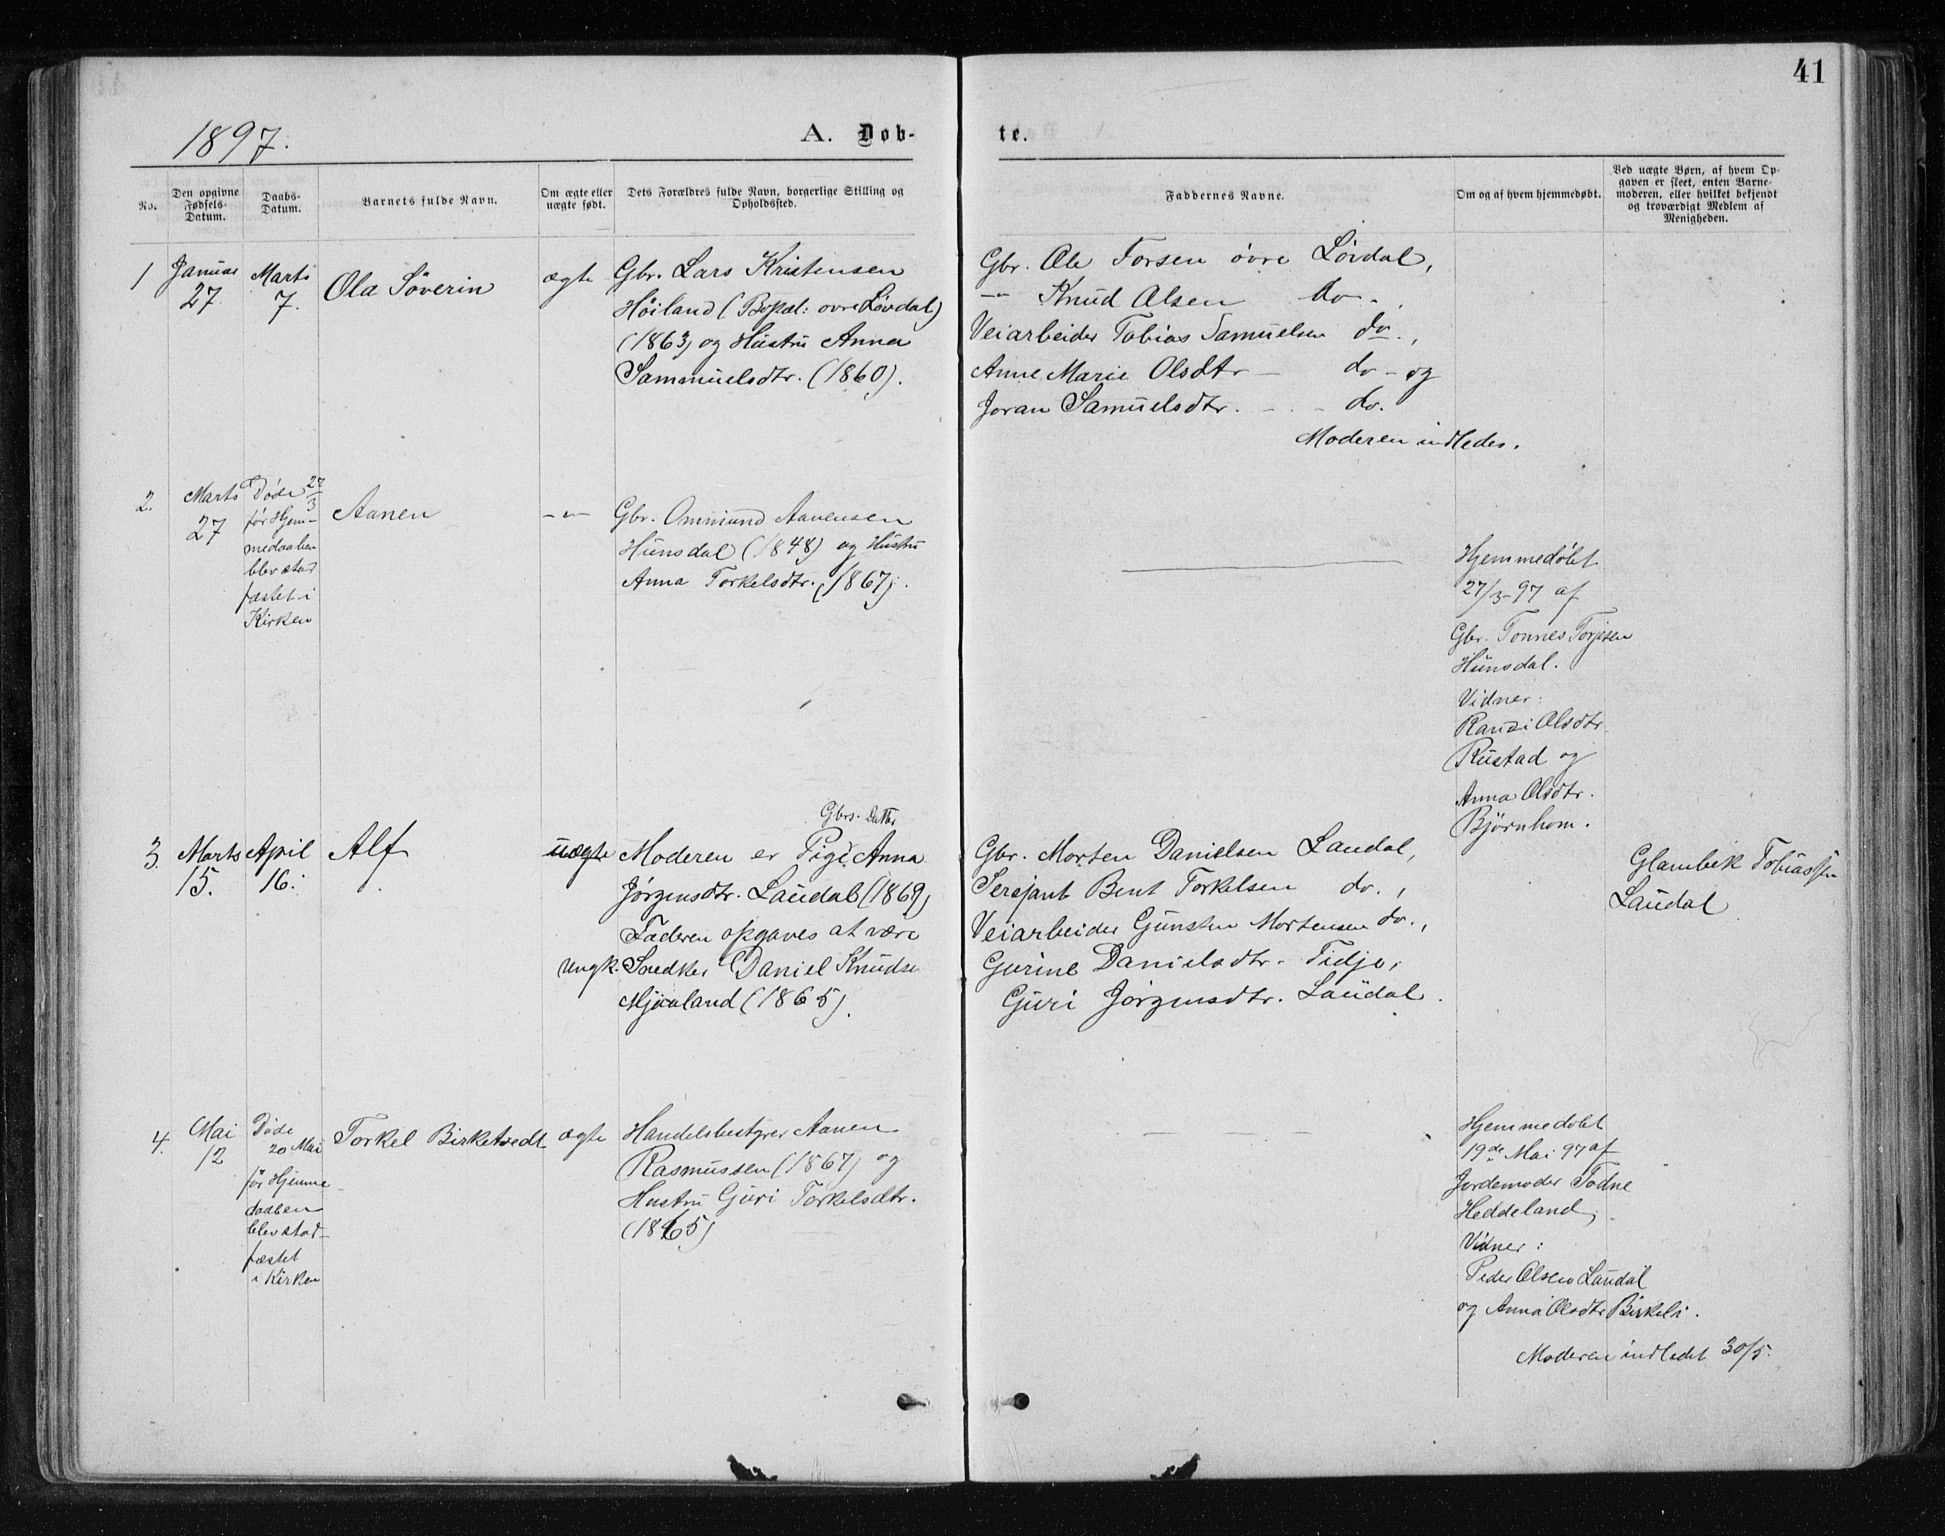 41
1897.
A. Døb-
te.
No.
Den opgivne
Fødsels-
Datum.
Daabs-
Datum.
Barnets fulde Navn.
Om ægte eller
uægte født.
Dets Forældres fulde Navn, borgerlige Stilling og
Opholdssted.
Faddernes Navne.
Om og af hvem hjemmedøbt.
Ved uægte Børn, af hvem Op-
gaven er skeet, enten Barne-
moderen, eller hvilket bekjendt
og troværdigt Medlem af
Menigheden.
1
Januar
27
Marts
7.
Ola Söverin
ægte
Gbr. Lars Kristensen
Höiland (Bopæl: øvre Løvdal)
(1863) og Hustru Anna
Sammuelsdtr. (1860).
Gbr. Ole Torsen övre Lövdal,
-"- Knud Olsen do-.
Veiarbeider Tobias Samuelsen do.,
Anne Marie Olsdtr - do - og
Joran Samuelsdtr. - - - do.
Moderen indledes.
2.
Marts
27
Døde 27/3
før Hjem-
medaaben
blev stad
fæstet i
Kirken
Aanen
-"-
Gbr. Ommund Aanensen
Hunsdal (1848) og Hustru
Anna Torkelsdtr. (1867).
Hjemmedøbt
27/3-97 af
Gbr. Tønnes Torjesen
Hunsdal.
Vidner:
Olsdtr.
Rustad og
Anna Olsdtr.
Bjørnhom.
3.
Marts
15.
April
16.
Alf
uægte
Gbrs. Datter
Moderen er Pige Anna
Jørgensdtr. Laudal (1869)
Faderen opgaves at være
Ungk. Snedker Daniel Knudse
Mjaaland (1865).
Gbr. Morten Danielsen Laudal,
Sersjant Bent Torkelsen do.,
Veiarbeider Gunsten Mortensen do.,
Gurine Danielsdtr. Tidje,
Guri Jørgensdtr. Laudal.
Glambek Tobiassen
Laudal
4.
Mai
12
Døde
20 Mai
før Hjemme
daaben
blev stad-
fæstet
i Kirken
Torkel Birketvedt
ægte
Handelsbestyrer Aanen
Rasmussen (1867) og
Hustru Guri Torkelsdtr.
(1865)
Hjemmedøbt
19de Mai 97 af
Jordemoder Todne
Heddeland,
Vidner:
Peder Olsen Laudal
og Anna Olsdtr Birkeli.
Moderen indledet 30/5.